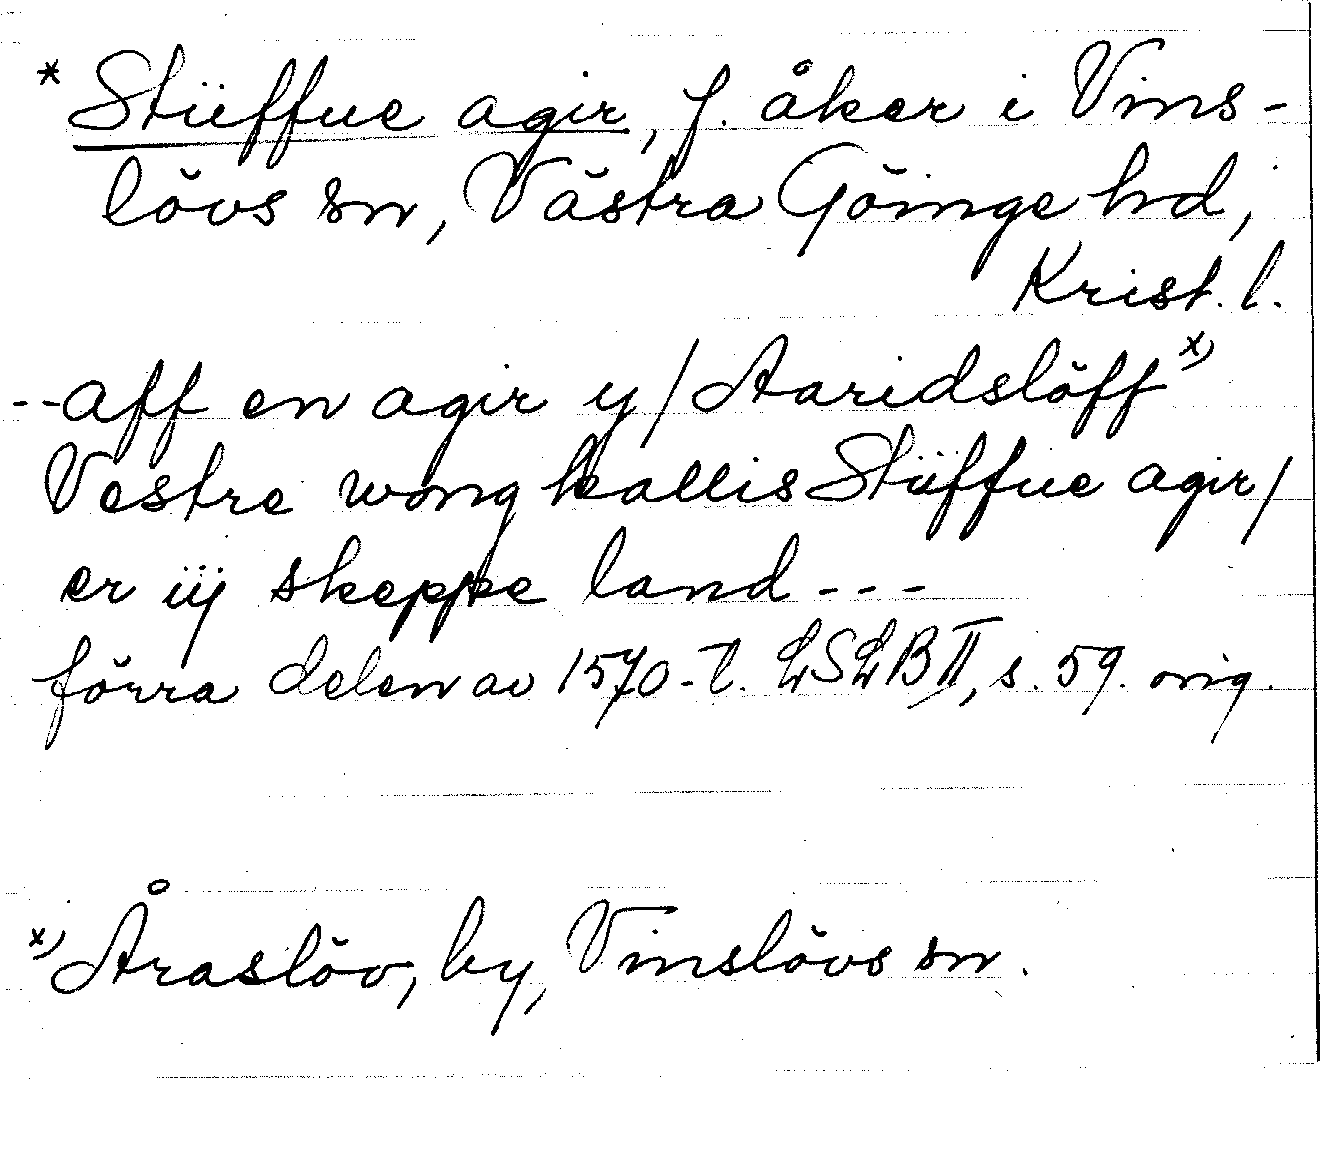 * Stüffue agir, f. åker i Vins-
lövs sn, Västra Göinge hd,
Krist. l.
--aff en agir y / Aaridslöff x)
Vestre wong kallis Stüffue agir /
er iij skeppe land ---
förra delen av 1570-t. LSLB II, s. 59. orig.
x) Åraslöv, by, Vinslövs sn.